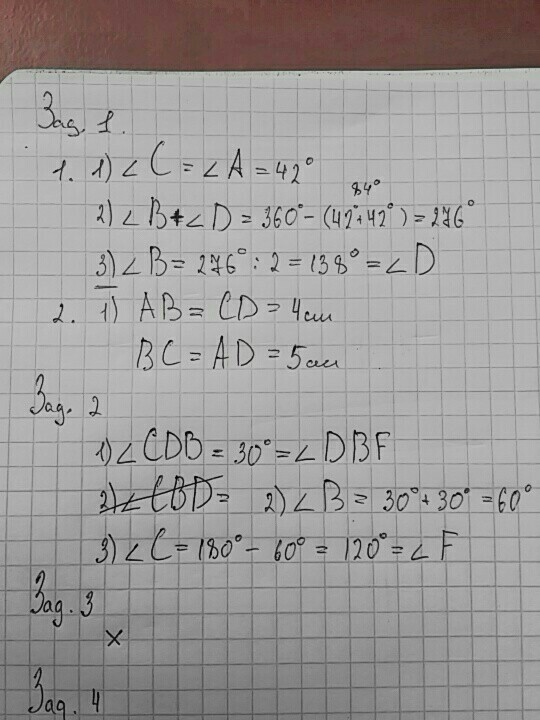 Зад. 1.
1. 1) ∠C = ∠A = 42°
84°
2) ∠B + ∠D = 360° - (42° + 42°) = 276°
3) ∠B = 276° : 2 = 138° = ∠D
2. 1) AB = CD = 4см
BC = AD = 5см
Зад. 2
1) ∠CDB = 30° = ∠DBF
2) ∠CBD = 2) ∠B = 30° + 30° = 60°
3) ∠C = 180° - 60° = 120° = ∠F
Зад. 3
×
Зад. 4